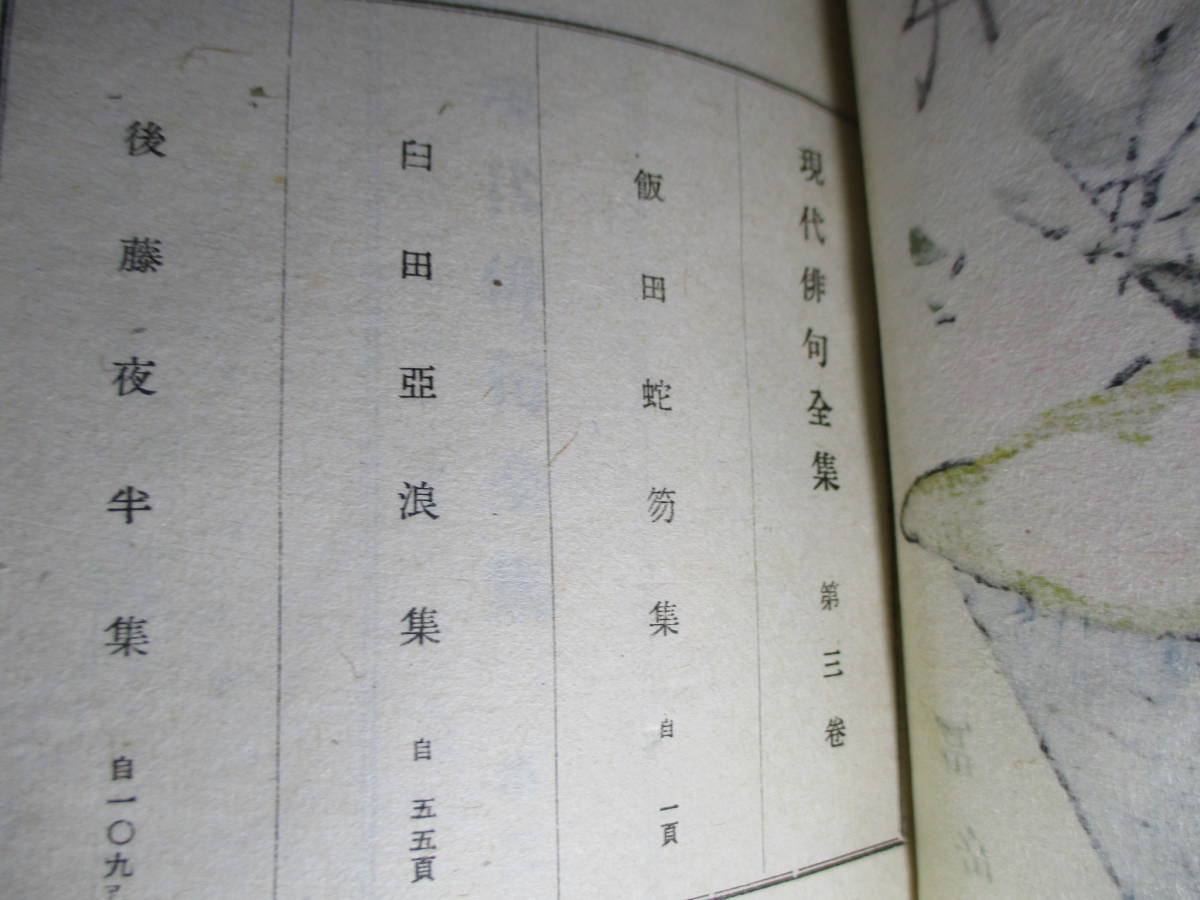 現代俳句全集 第三卷
飯田蛇笏集 自 一頁
臼田亞浪集 自 五五頁
後藤夜半集 自一〇九